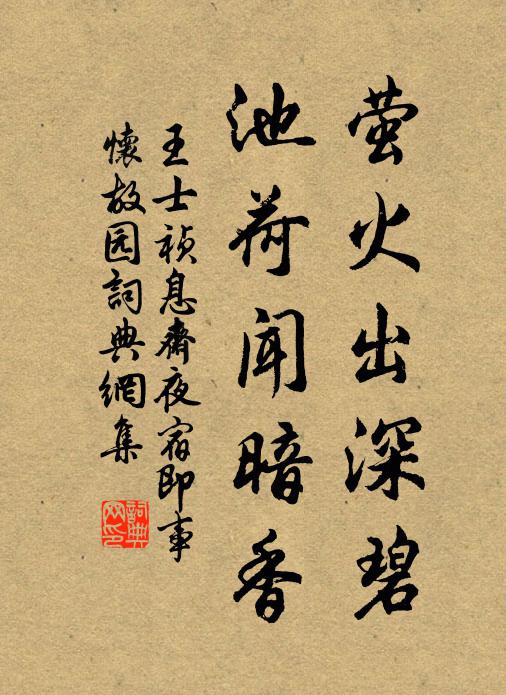 萤火出深碧
池荷闻暗香
王士祯息斋夜宿即事
懷故园詞典網集
詞典网印